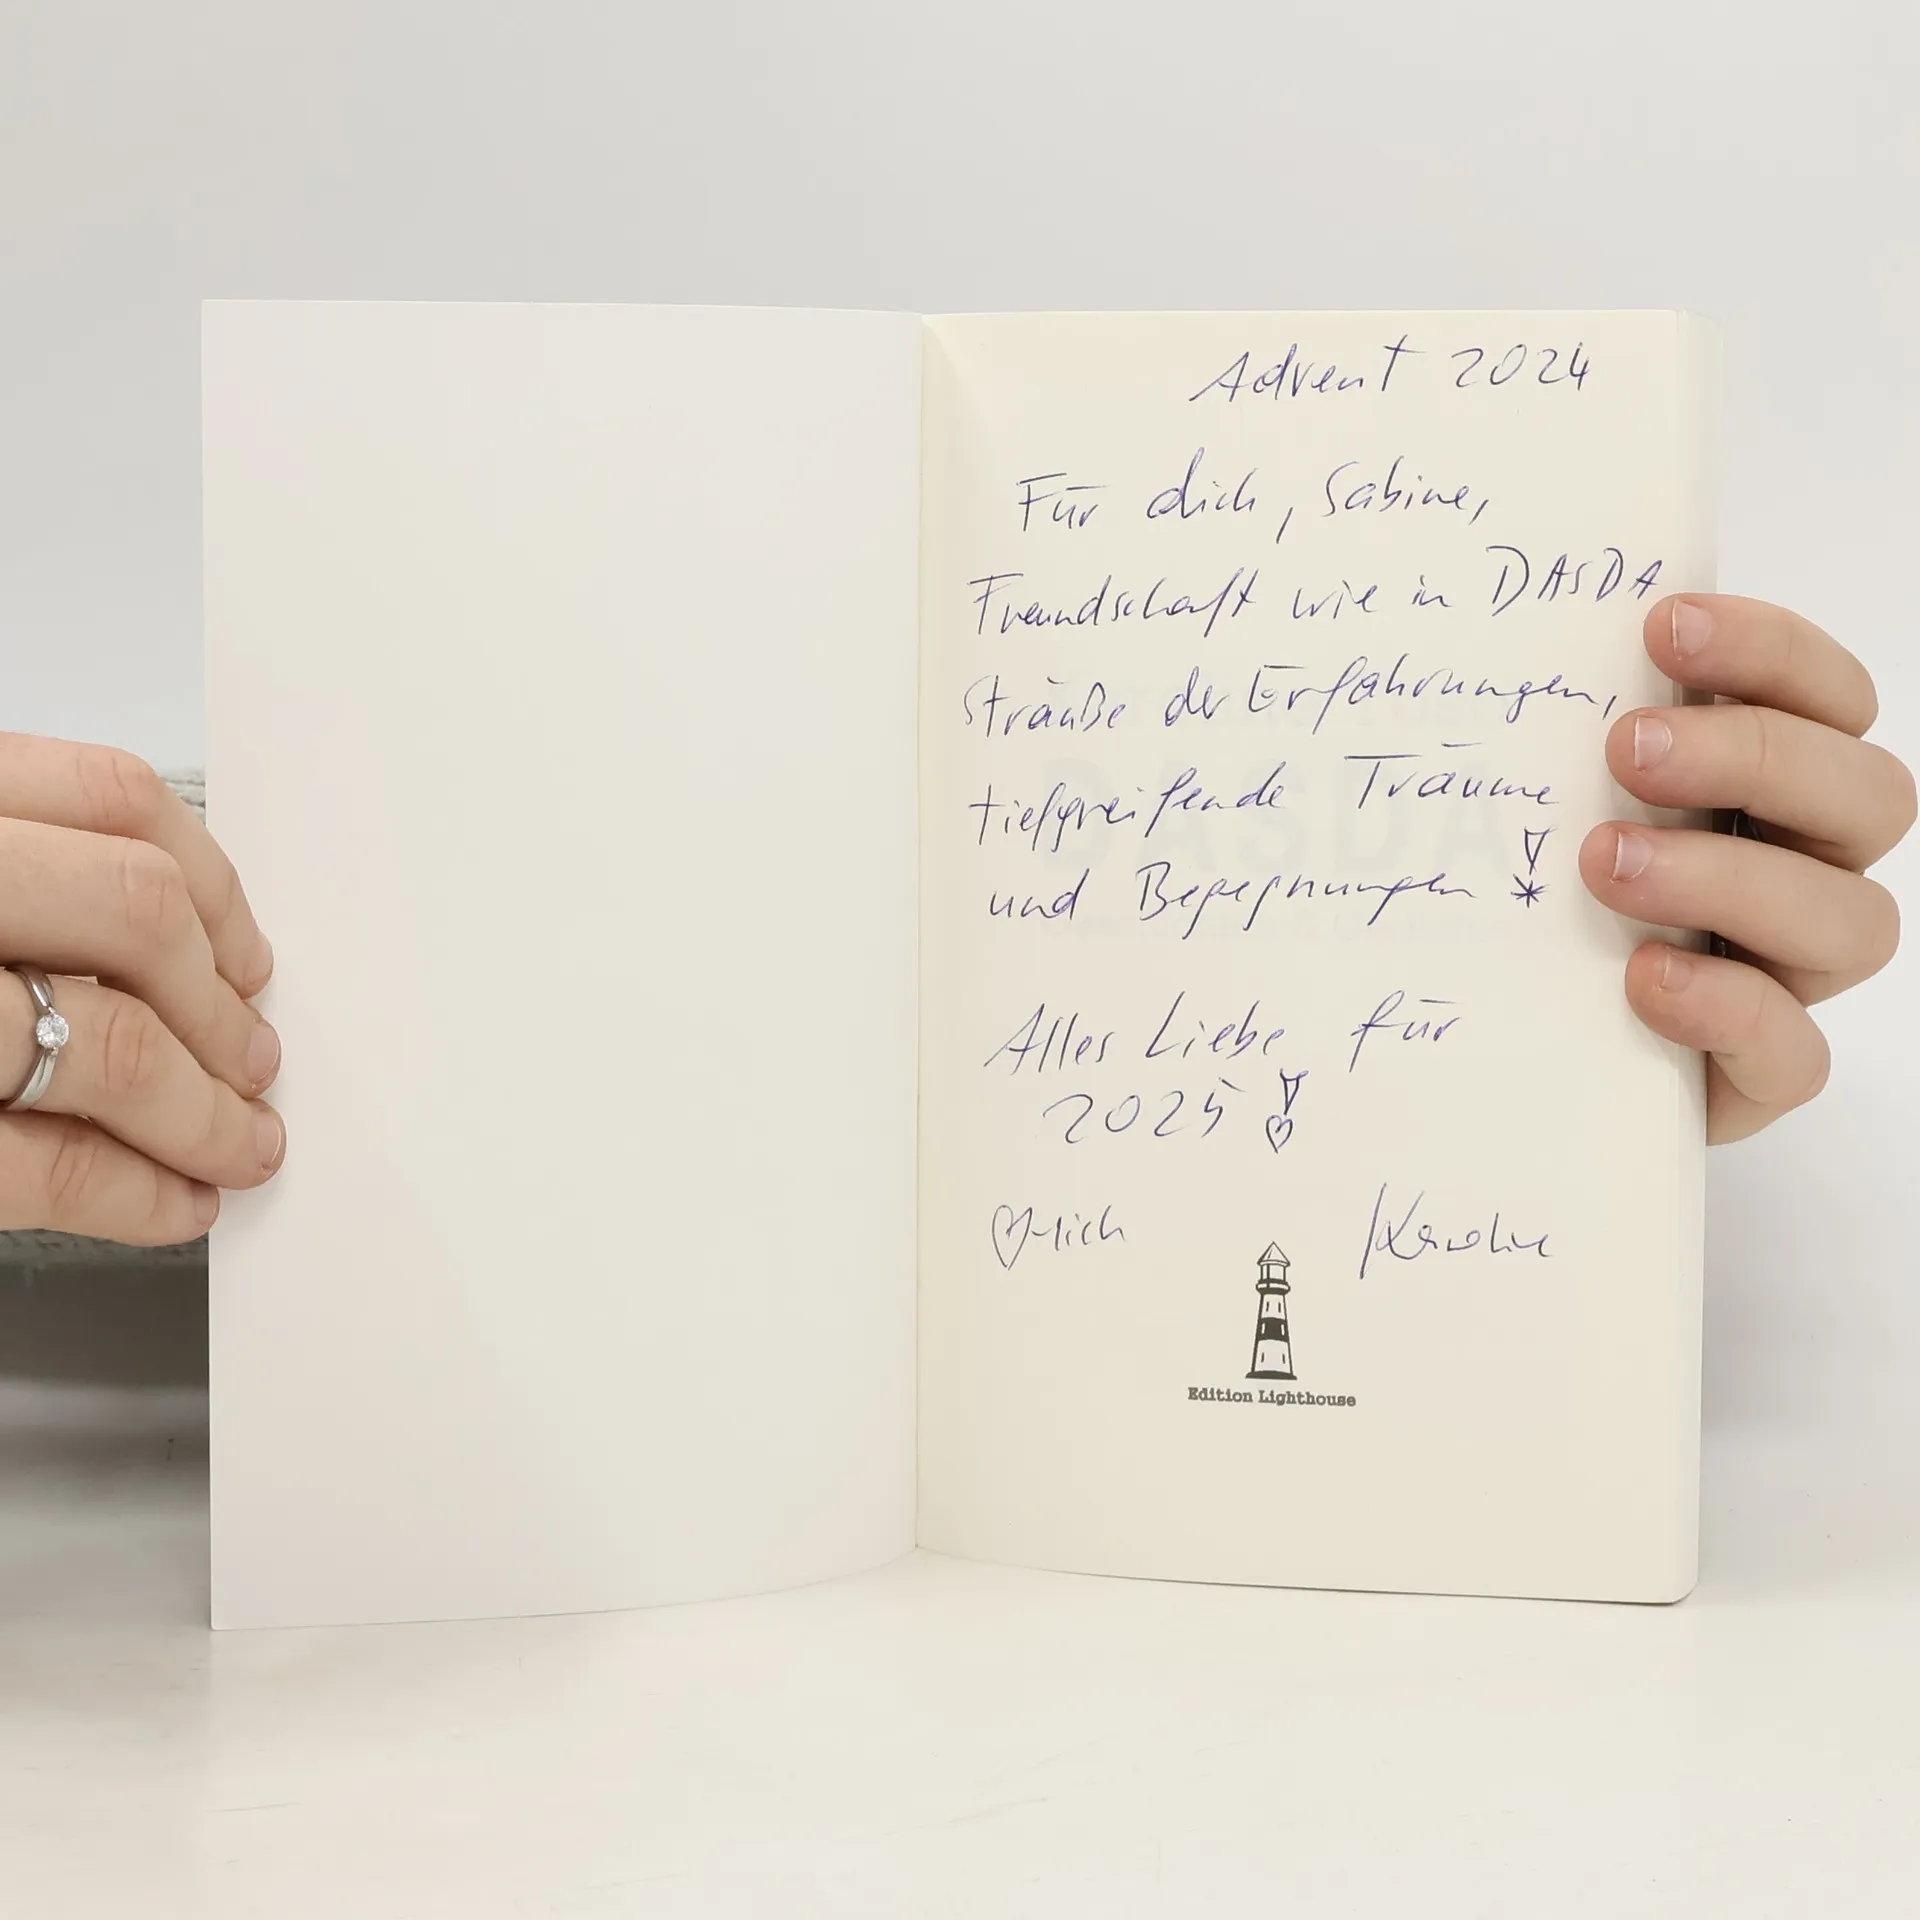 Advent 2024
Für dich, Sabine,
Freundschaft wie in DASDA
Sträuße der Erfahrungen,
tiefgreifende Träume
und Begegnungen!
Alles Liebe für
2025!
♡-lich Karoline
Edition Lighthouse